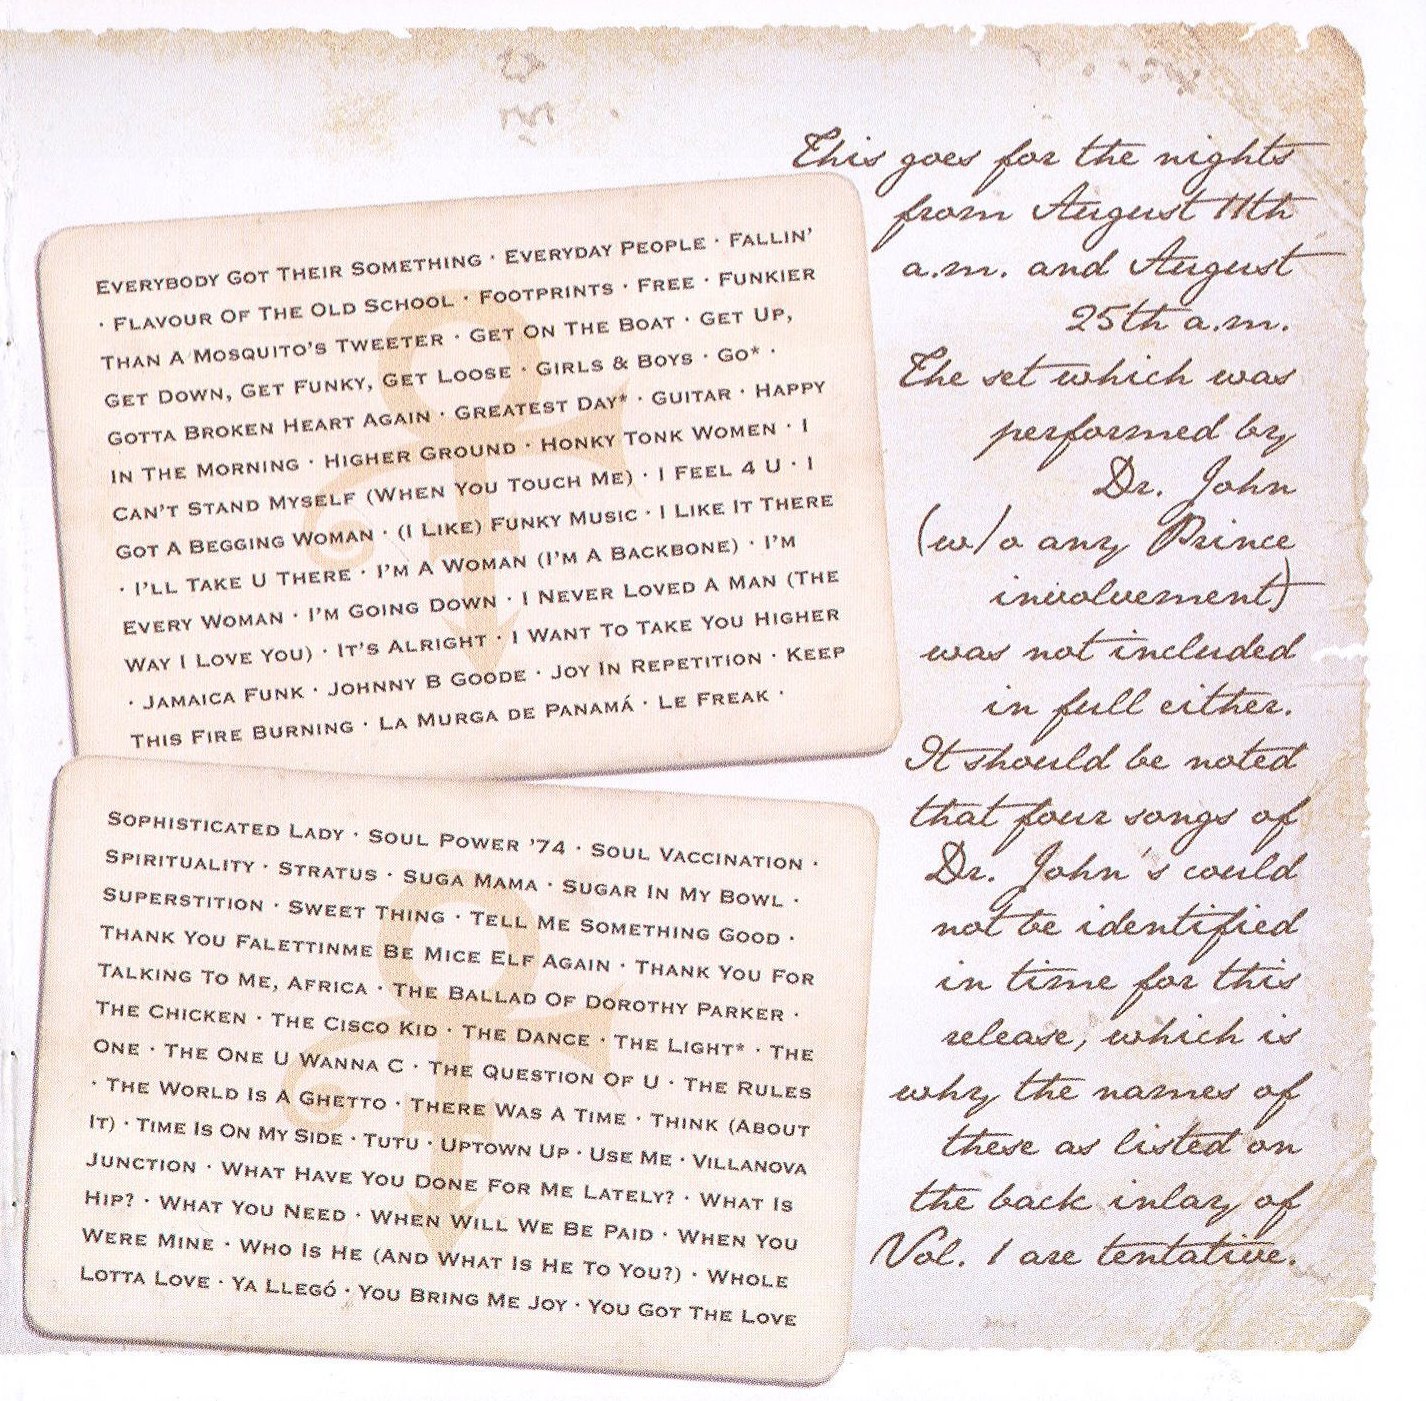 Everybody Got Their Something · Everyday People · Fallin'
· Flavour Of The Old School · Footprints · Free · Funkier
Than A Mosquito's Tweeter · Get On The Boat · Get Up,
Get Down, Get Funky, Get Loose · Girls & Boys · Go* ·
Gotta Broken Heart Again · Greatest Day* · Guitar · Happy
In The Morning · Higher Ground · Honky Tonk Women · I
Can't Stand Myself (When You Touch Me) · I Feel 4 U · I
Got A Begging Woman · (I Like) Funky Music · I Like It There
· I'll Take U There · I'm A Woman (I'm A Backbone) · I'm
Every Woman · I'm Going Down · I Never Loved A Man (The
Way I Love You) · It's Alright · I Want To Take You Higher
· Jamaica Funk · Johnny B Goode · Joy In Repetition · Keep
This Fire Burning · La Murga de Panamá · Le Freak ·
Sophisticated Lady · Soul Power '74 · Soul Vaccination ·
Spirituality · Stratus · Suga Mama · Sugar In My Bowl ·
Superstition · Sweet Thing · Tell Me Something Good ·
Thank You Falettinme Be Mice Elf Again · Thank You For
Talking To Me, Africa · The Ballad Of Dorothy Parker ·
The Chicken · The Cisco Kid · The Dance · The Light* · The
One · The One U Wanna C · The Question Of U · The Rules
· The World Is A Ghetto · There Was A Time · Think (About
It) · Time Is On My Side · Tutu · Uptown Up · Use Me · Villanova
Junction · What Have You Done For Me Lately? · What Is
Hip? · What You Need · When Will We Be Paid · When You
Were Mine · Who Is He (And What Is He To You?) · Whole
Lotta Love · Ya Llegó · You Bring Me Joy · You Got The Love
This goes for the nights
from August 11th
a.m. and August
25th a.m.
The set which was
performed by
Dr. John
(w/o any Prince
involvement)
was not included
in full either.
It should be noted
that four songs of
Dr. John's could
not be identified
in time for this
release, which is
why the names of
these as listed on
the back inlay of
Vol. 1 are tentative.